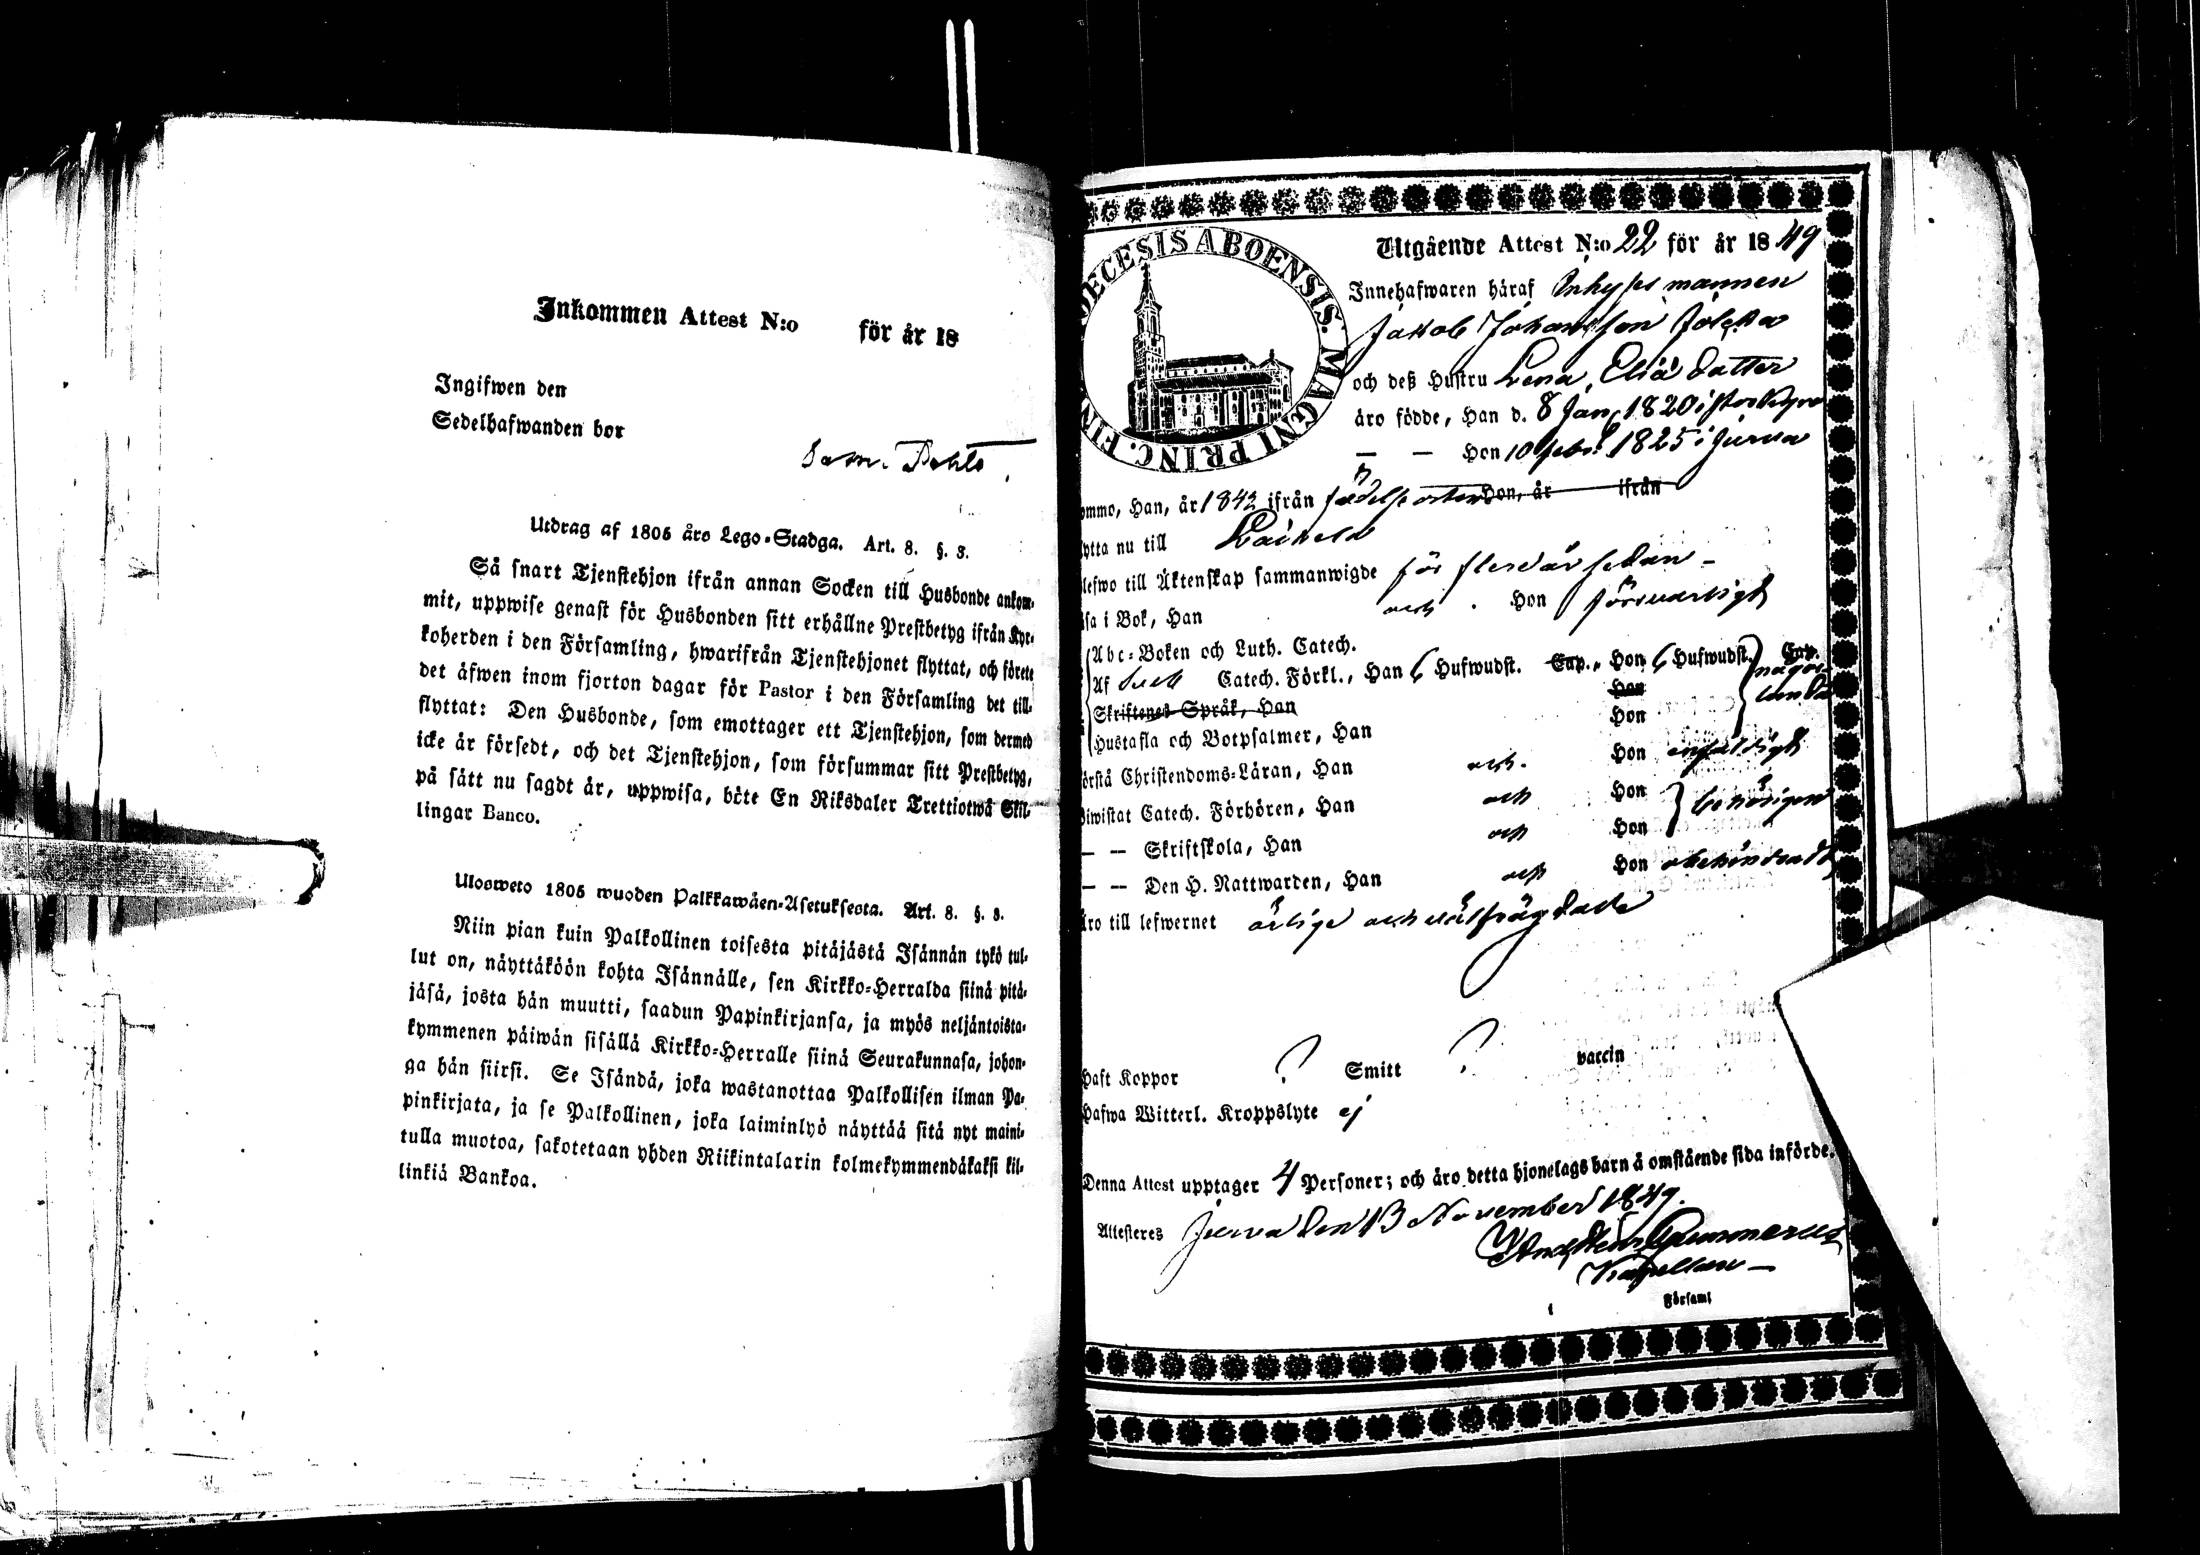 Inkommen Attest N:o för år 18
Ingifwen den
Sedelhafwanden bor
Utdrag af 1805 års Lego-Stadga. Art. 8. §. 3.
Så snart Tjenstehjon ifrån annan Socken till Husbonde ankom-
mit, uppwise genast för Husbonden sitt erhållne Prestbetyg ifrån Kyr-
koherden i den Församling, hwarifrån Tjenstehjonet flyttat, och förete
det äfwen inom fjorton dagar för Pastor i den Församling det till-
flyttat: Den Husbonde, som emottager ett Tjenstehjon, som dermed
icke är försedt, och det Tjenstehjon, som försummar sitt Prestbetyg,
på sätt nu sagdt är, uppwisa, böte En Riksdaler Trettiotwå Skil-
lingar Banco.
Ulosweto 1805 wuoden Palkkawäen-Asetuksesta. Art. 8. §. 3.
Niin pian kuin Palkollinen toisesta pitäjästä Isännän tykö tul-
lut on, näyttäköön kohta Isännälle, sen Kirkko-Herralda siinä pitä-
jäsä, josta hän muutti, saadun Papinkirjansa, ja myös neljäntoista-
kymmenen päiwän sisällä Kirkko-Herralle siinä Seurakunnasa, johon-
ga hän siirsi. Se Isändä, joka wastanottaa Palkollisen ilman Pa-
pinkirjata, ja se Palkollinen, joka laiminlyö näyttää sitä nyt maini-
tulla muotoa, sakotetaan yhden Riikintalarin kolmekymmendäkaksi kil-
linkiä Bankoa.
DECESIS ABOENSIS. MAGNI PRINC. FIN
Utgående Attest N:o 22 för år 1849
Innehafwaren häraf Inhyses mannen
Jakob Johansson
och deß Hustru Lena Eliä dotter
äro födde, Han d. 8 Jan. 1820 i Storkyro
— — Hon 10 Febr. 1825 i Jurva
ommo, Han, år 1842 ifrån födelse orten Hon, år ifrån
ytta nu till Laihela
lefwo till Äktenskap sammanwigde för flere år sedan –
äsa i Bok, Han och Hon försvarligt
Abc-Boken och Luth. Catech.
Af Catech. Förkl., Han 6 Hufwudst. Cap., Hon 6 Hufwudst. Cap.
Skriftenes Språk, Han Hon
Hustafla och Botpsalmer, Han Hon
örstå Christendoms-Läran, Han och Hon enfaldigt
biwistat Catech. Förhören, Han och Hon behörigen
— — Skriftskola, Han och Hon
— — Den H. Nattwarden, Han och Hon obehindradt
äro till lefwernet ärlige och välfrägdade
Haft Koppor ? Smitt ? vaccin
Hafwa Witterl. Kroppslyte ej
Denna Attest upptager 4 Personer; och äro detta hjonelags barn å omstående sida införde.
Attesteres Jurva den 13 November 1849.
Gummerus
Kapellan –
Församl